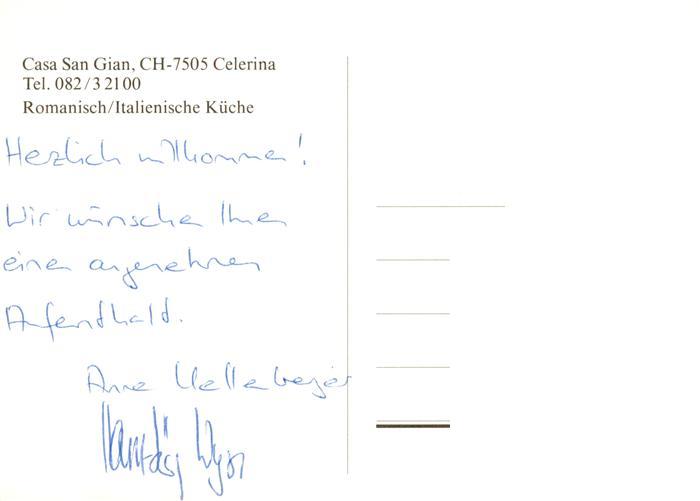 Casa San Gian, CH-7505 Celerina
Tel. 082/3 2100
Romanisch/Italienische Küche
Herzlich willkommen!
Wir wünschen Ihnen
einen angenehmen
Aufenthald.
Anne